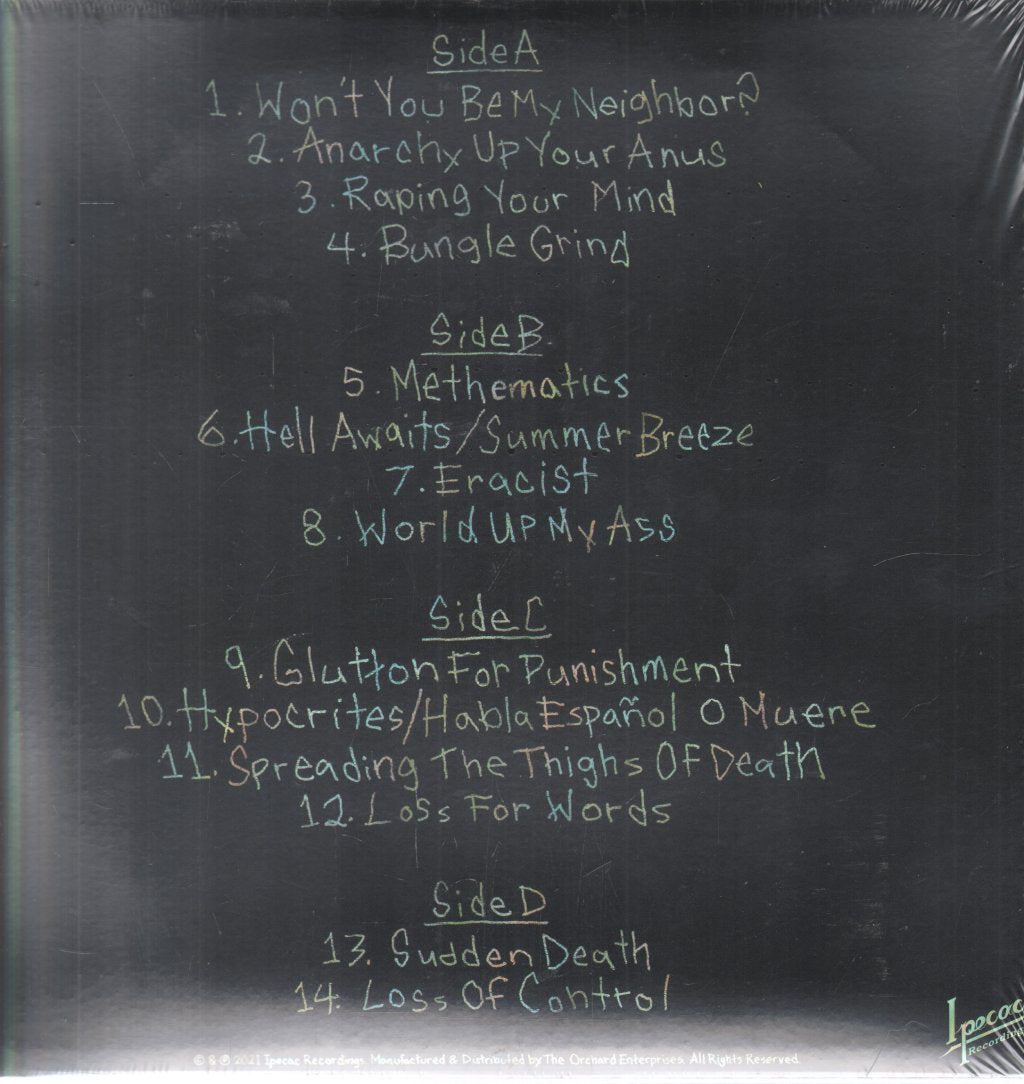 Side A
1. Won't You Be My Neighbor?
2. Anarchy Up Your Anus
3. Raping Your Mind
4. Bungle Grind
Side B
5. Methematics
6. Hell Awaits/Summer Breeze
7. Eracist
8. World Up My Ass
Side C
9. Glutton For Punishment
10. Hypocrites/Habla Español O Muere
11. Spreading The Thighs Of Death
12. Loss For Words
Side D
13. Sudden Death
14. Loss Of Control
Ipecac
Recordings
© & ℗ 2021 Ipecac Recordings. Manufactured & Distributed by The Orchard Enterprises. All Rights Reserved.